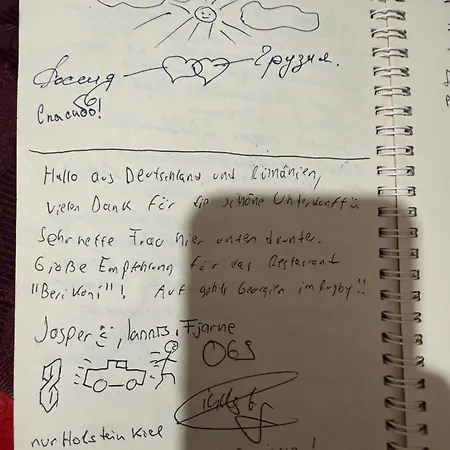 Россия Грузия.
Спасибо!
Hallo aus Deutschland und Rumänien,
vielen Dank für die schöne Unterkunft.
Sehr nette Frau hier unten drunter.
Große Empfehlung für das Restaurant
"Berikoni"! Auf gehts Georgien im Rugby!!
Jasper, Jannis, Fjarne
nur Holstein Kiel